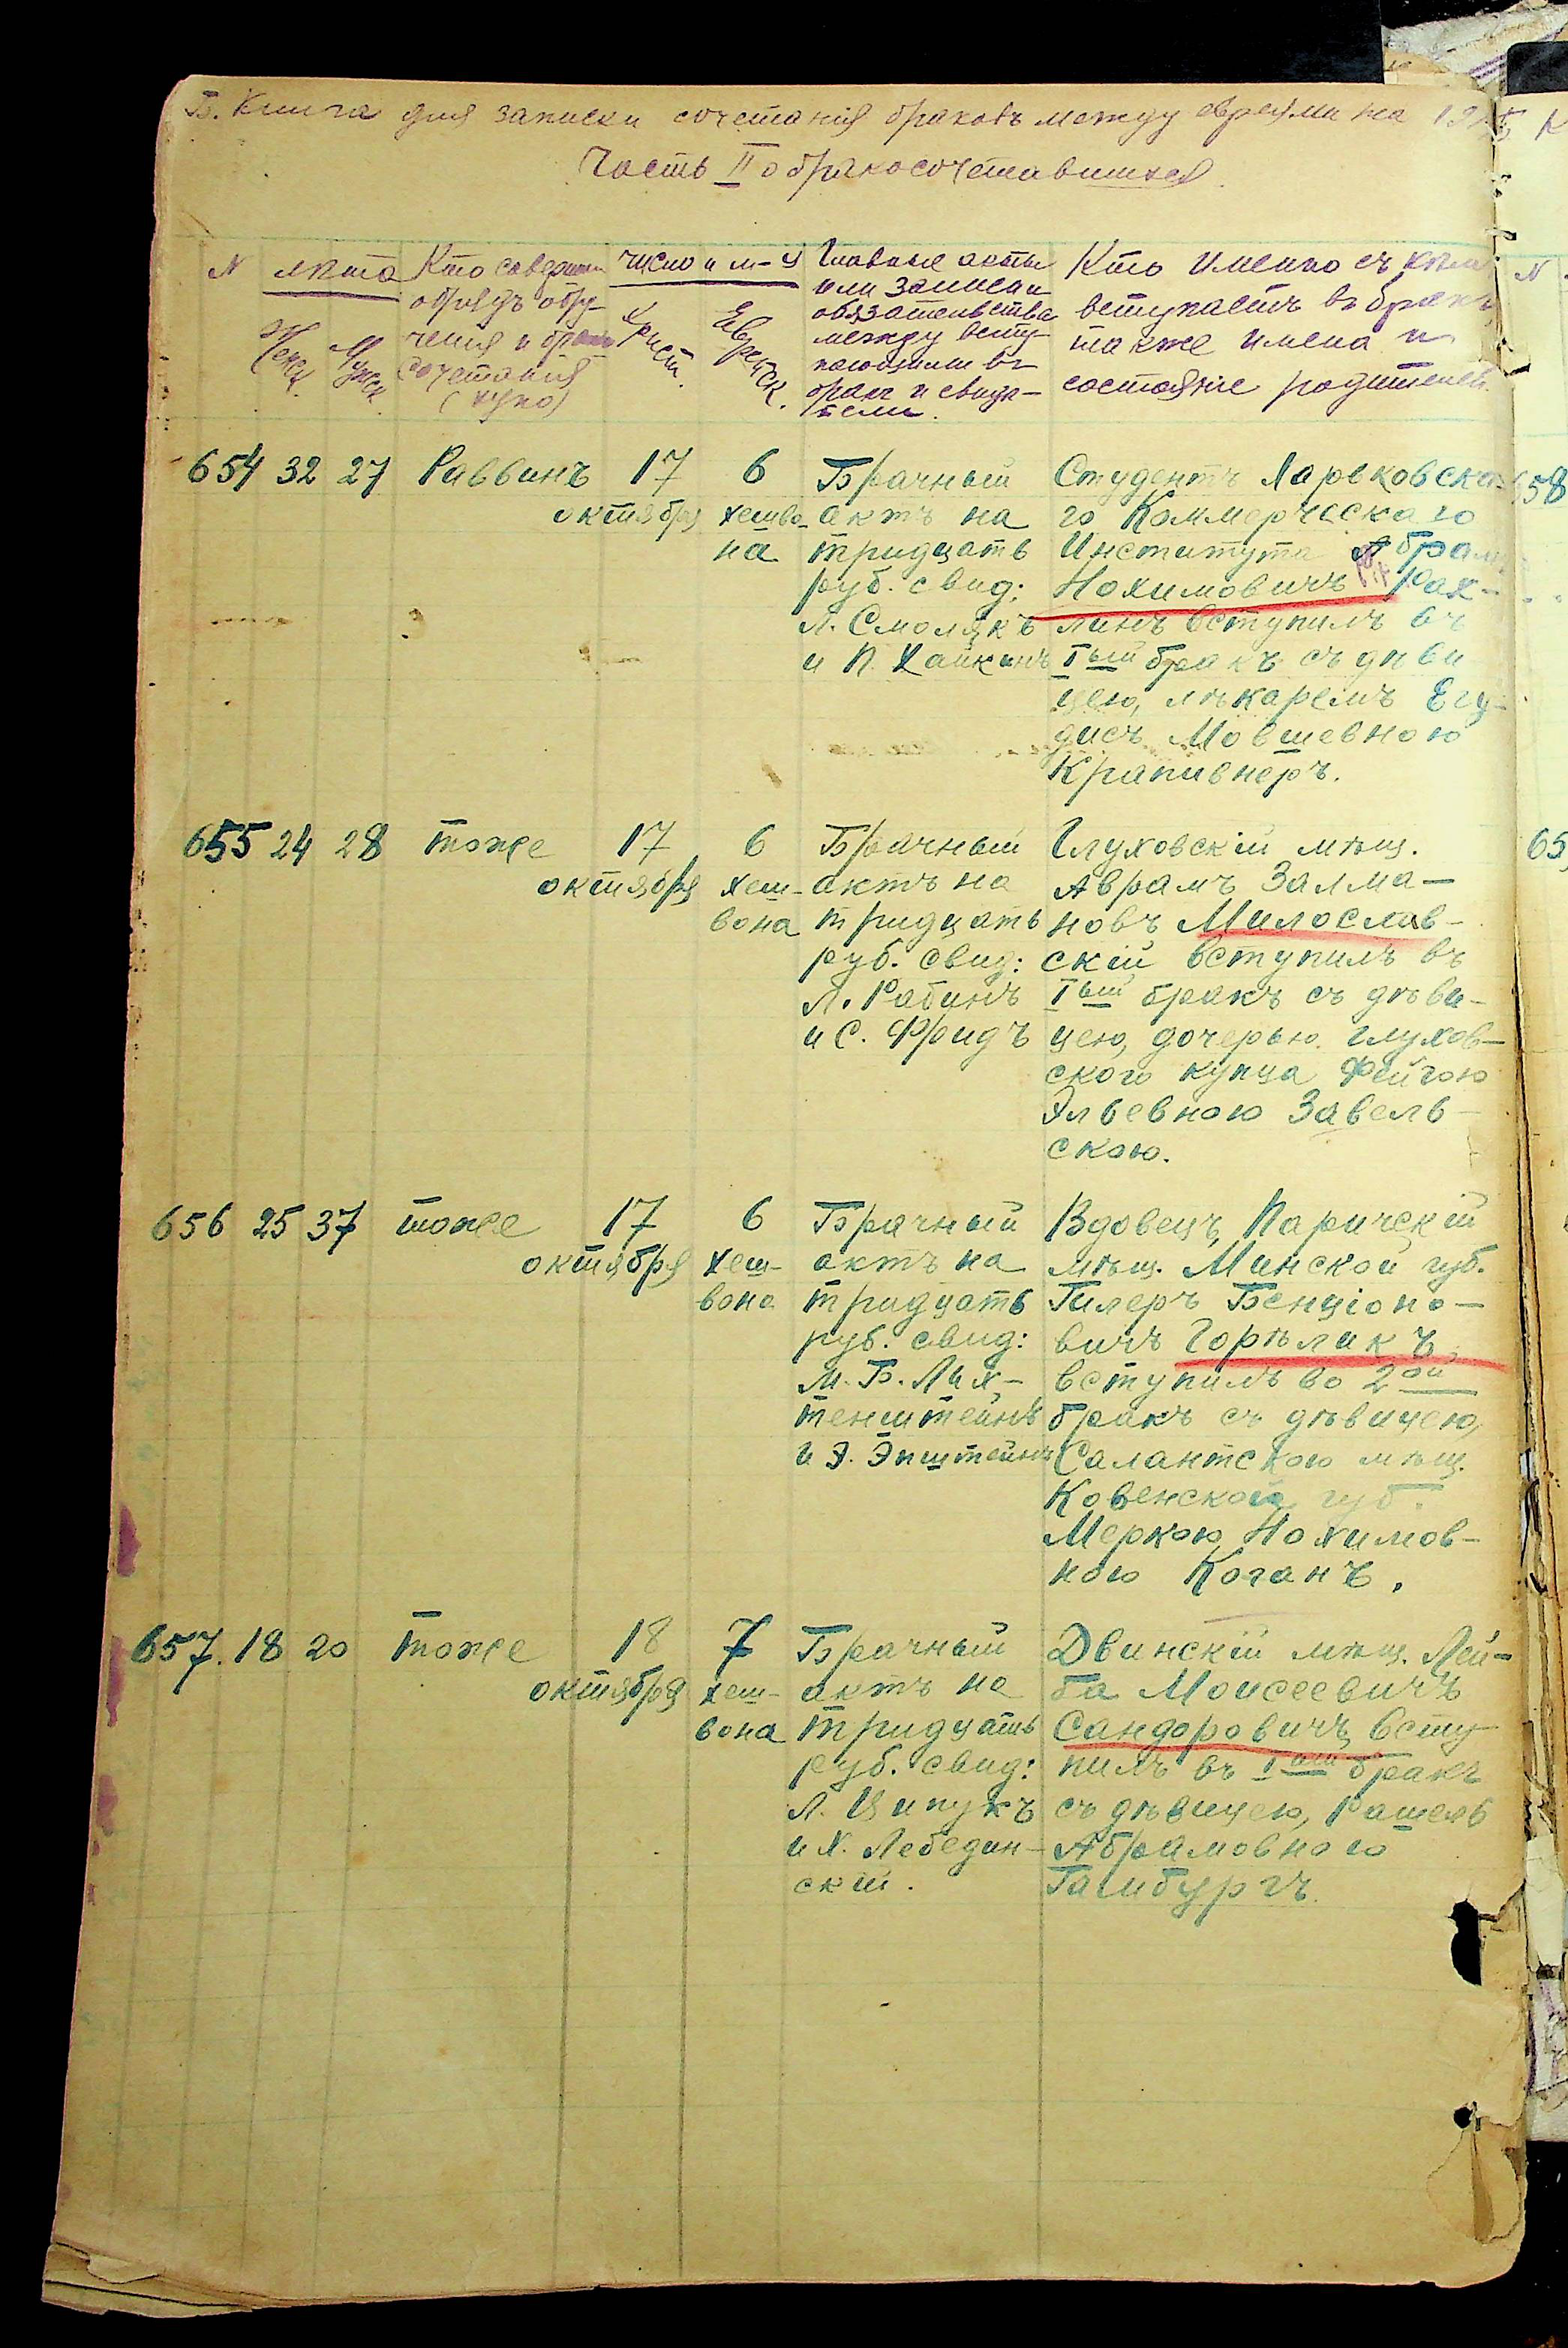 Б. Книга для записки сочетанія браковъ между евреями на 1915
Часть II о бракосочетавшихся.
N
лѣта
Женск.
Мужск.
Кто совершалъ
обрядъ обру-
ченія и брако
сочетанія
число и м-ц
Христ.
Еврейск.
Главные акты
или записи и
обязательства
между всту-
пающими въ
бракъ и свидѣ-
тели.
Кто именно съ кѣмъ
вступаетъ въ бракъ,
также имена и
состояніе родителей.
654 32 27 Раввинъ
17
октября
6
хешво-
на
Брачный
актъ на
тридцать
руб. свид:
Л. Смолякъ
и П. Хайкинъ
Студентъ Харьковска-
го Коммерческаго
Института Абрам
Нохимовичъ Рах-
линъ вступилъ въ
Iый бракъ съ дѣви
цею, лѣкаремъ Егу-
дисъ Мовшевною
Крапивнеръ.
655 24 28 тоже
17
октября
6
хеш-
вона
Брачный
актъ на
тридцать
руб. свид:
Л. Рабинъ
и С. Фридъ
Глуховскій мѣщ.
Аврамъ Залма-
новъ Милослав-
скій вступилъ въ
Iый бракъ съ дѣви-
цею, дочерью глухов-
ского купца Фейгою
Эльевною Завель-
скою.
656 25 37 тоже
17
октября
6
хеш-
вона
Брачный
актъ на
тридцать
руб. свид:
М. Б. Лих-
тенштейнъ
и Э. Эпштейнъ
Вдовецъ, Паричскій
мѣщ. Минской губ.
Гилеръ Бенціоно-
вичъ Горѣликъ,
вступилъ во 2ой
бракъ съ дѣвицею,
Салантскою мѣщ.
Ковенской губ.
Меркою Нохимов-
ною Коганъ.
657. 18 20 тоже
18
октября
7
хеш-
вона
Брачный
актъ на
тридцать
руб. свид:
Л. Ципукъ
и Х. Лебедин-
скій.
Двинскій мѣщ. Лей-
ба Моисеевичъ
Сандоровичъ всту-
пилъ въ Iый бракъ
съ дѣвицею, Рашель
Абрамовною
Гамбургъ.